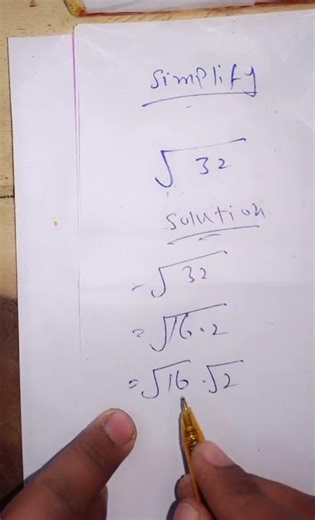 Simplify
√32
Solution
= √32
= √16 · 2
= √16 · √2